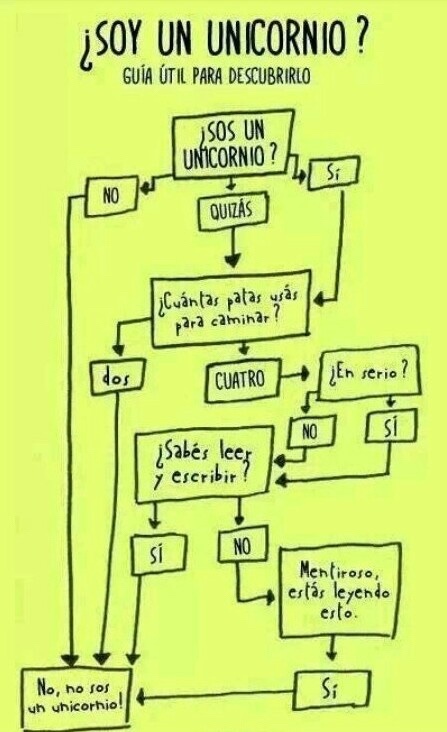 ¿SOY UN UNICORNIO?
GUÍA ÚTIL PARA DESCUBRIRLO
¿SOS UN
UNICORNIO?
NO
QUIZÁS
SÍ
¿Cuántas patas usás
para caminar?
dos
CUATRO
¿En serio?
NO
SÍ
¿Sabés leer
y escribir?
SÍ
NO
Mentiroso,
estás leyendo
esto.
Sí
No, no sos
un unicornio!